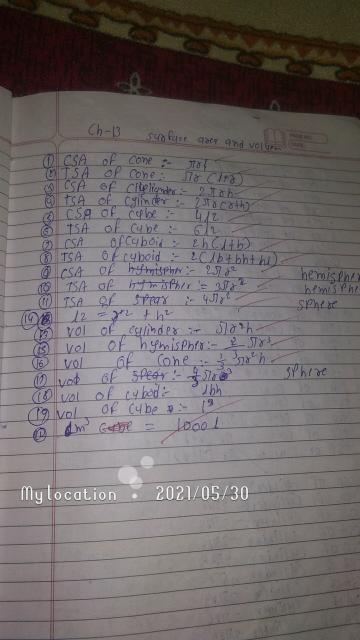 Ch-13 surface area and volume
① CSA of cone :- πrl
② TSA of cone :- πr (l+r)
③ CSA of cylinder :- 2πrh
④ TSA of cylinder :- 2πr(r+h)
⑤ CSA of cube :- 4l2
⑥ TSA of cube :- 6l2
⑦ CSA of cuboid :- 2h(l+b)
⑧ TSA of cuboid :- 2(lb+bh+hl)
⑨ CSA of hymispher :- 2πr² hemispher
⑩ TSA of hymispher :- 3πr² hemisphe
⑪ TSA of spear :- 4πr² sphere
l2 = r2 + h²
vol of cylinder :- πr²h
⑮ vol of hymispher :- πr³
⑯ vol of cone :- 1/3 πr²h
⑰ vol of spear :- πr³ sphere
⑱ vol of cuboid :- lbh
⑲ vol of cube :- l³
m³ = 1000 l
Mylocation 2021/05/30